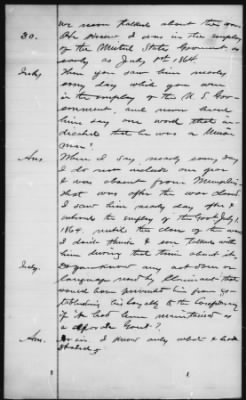 we never talked about the war
He knew I was in the employ
of the United States Government as
early as July 1st 1864.
30.
Inty. Then you saw him nearly
every day while you were
in the employ of the U. S. Gov-
ernment, and never heard
him say one word that in-
dicated that he was a Union
man?
Ans. When I say, nearly every day
I do not include our
I was absent from Memphis
that was after the war closed
I saw him nearly day after I
entered the employ of the Govt July 1
1864 until the close of the war
I don't think I ever talked with
him during that time about it.
Inty. Do you know any act done or
language used by Claimant that
would have prevented him from es-
tablishing his loyalty to the Confederacy
if it had been maintained as
a Govt?
Ans. No sir. I know only what I have
stated.